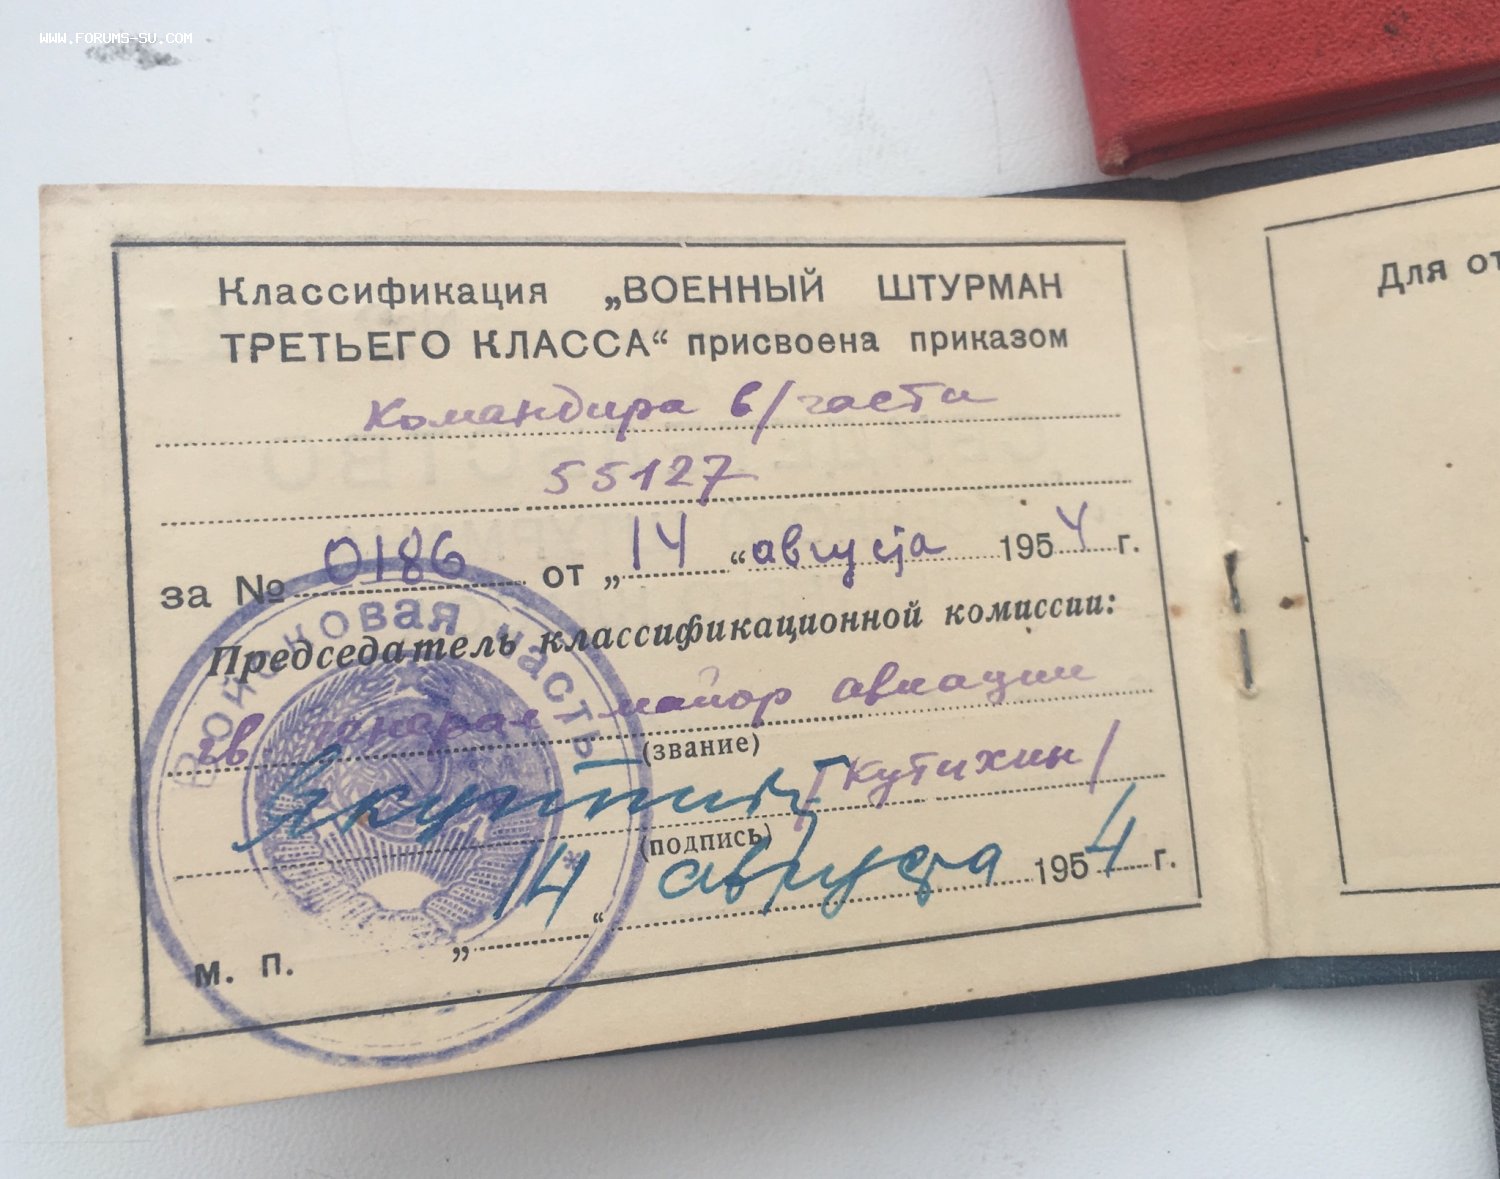 WWW.FORUMS-SU.COM
Классификация „ВОЕННЫЙ ШТУРМАН
ТРЕТЬЕГО КЛАССА“ присвоена приказом
Командира в/части
55127
за № 0186 от „ 14 “ августа 1954 г.
Председатель классификационной комиссии:
гв. генерал майор авиации
(звание)
/Кутихин/
(подпись)
„ 14 “ августа 1954 г.
М. П.
Войсковая часть
Для от